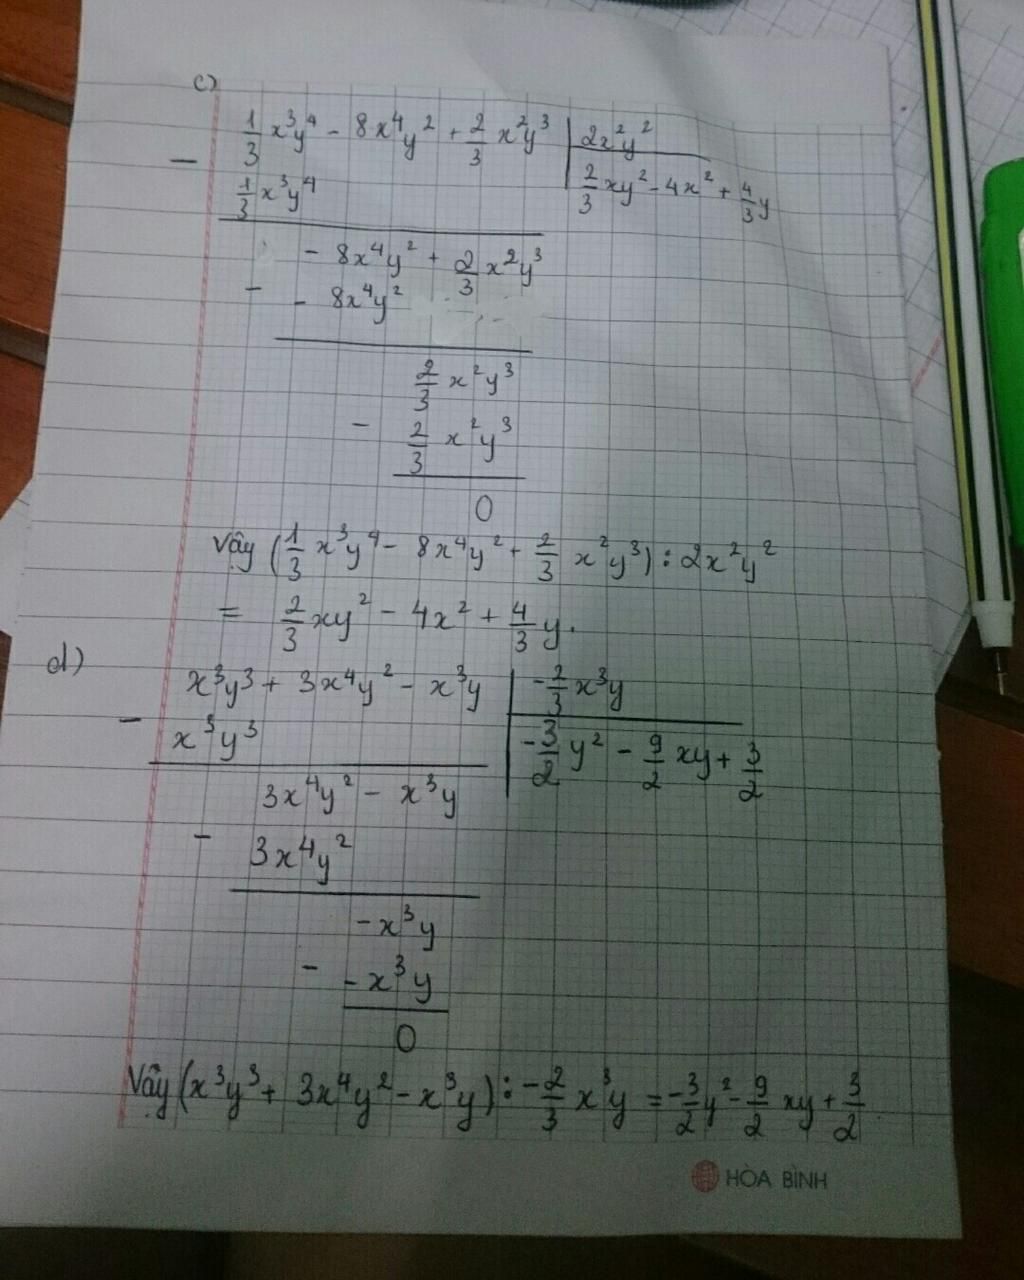 c)
1/3 x³y⁴ - 8x⁴y² + 2/3 x²y³ | 2x²y²
- 1/3 x³y⁴ | 2/3 xy² - 4x² + 4/3 y
- 8x⁴y² + 2/3 x²y³
- - 8x⁴y²
2/3 x²y³
- 2/3 x²y³
0
Vậy (1/3 x³y⁴ - 8x⁴y² + 2/3 x²y³) : 2x²y²
= 2/3 xy² - 4x² + 4/3 y.
d)
x³y³ + 3x⁴y² - x³y | -2/3 x³y
- x³y³ | -3/2 y² - 9/2 xy + 3/2
3x⁴y² - x³y
- 3x⁴y²
-x³y
- -x³y
0
Vậy (x³y³ + 3x⁴y² - x³y) : -2/3 x³y = -3/2 y² - 9/2 xy + 3/2
HÒA BÌNH